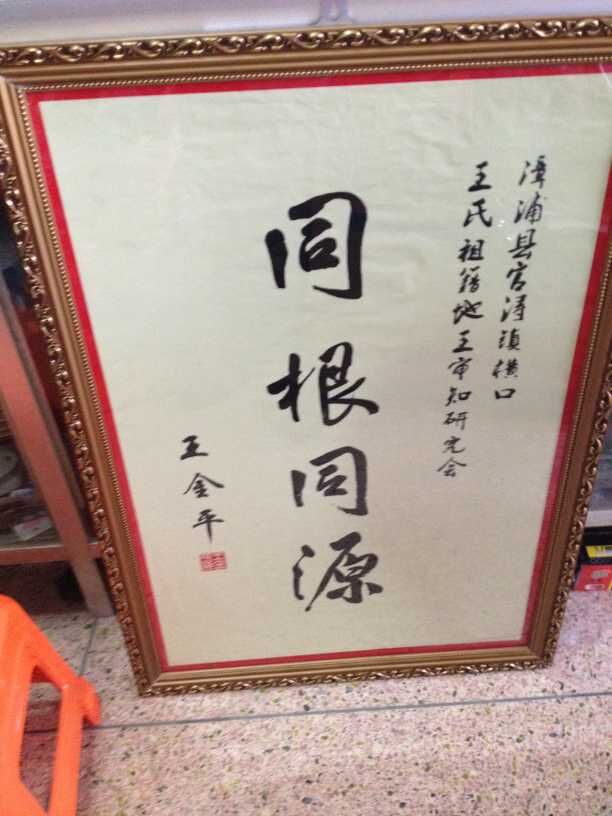 漳浦县官浔镇横口
王氏祖籍地王审知研究会
同根同源
王金平